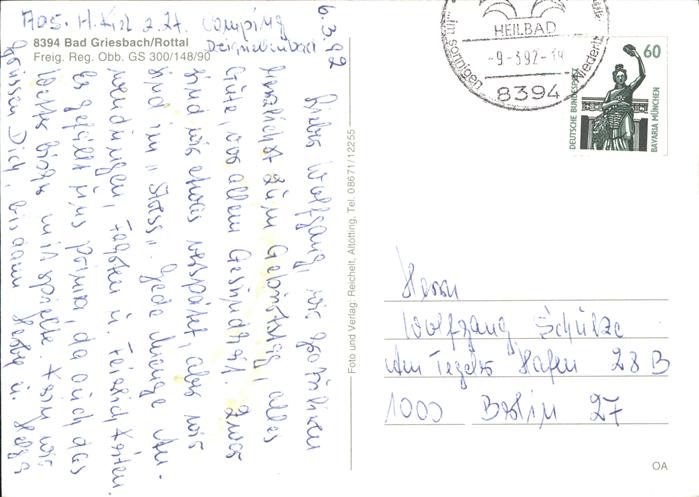 Abs. H. Kil z. Zt. Camping
Dreiquellenbad
8394 Bad Griesbach/Rottal
Freig. Reg. Obb. GS 300/148/90
6.3.92
Lieber Wolfgang, wir gratulieren
herzlichst zum Geburtstag, alles
Gute vor allem Gesundheit. Zwar
sind wir etwas verspätet, aber wir
sind im "Stress". Jede Menge An-
wendungen, Fasten u. Feierlichkeiten.
Es gefällt uns prima, da auch das
Wetter bisher mitspielte. Kern wir
grüssen Dich, bis dann Herbe u. Helga
Foto und Verlag: Reichelt, Altötting, Tel. 08671/12255
HEILBAD
Im sonnigen
Niederb
-9-3.92-14
8394
60
DEUTSCHE BUNDESPOST
BAVARIA MÜNCHEN
Herrn
Wolfgang Schulze
Am Tegeler Hafen 28 B
1000 Berlin 27
OA